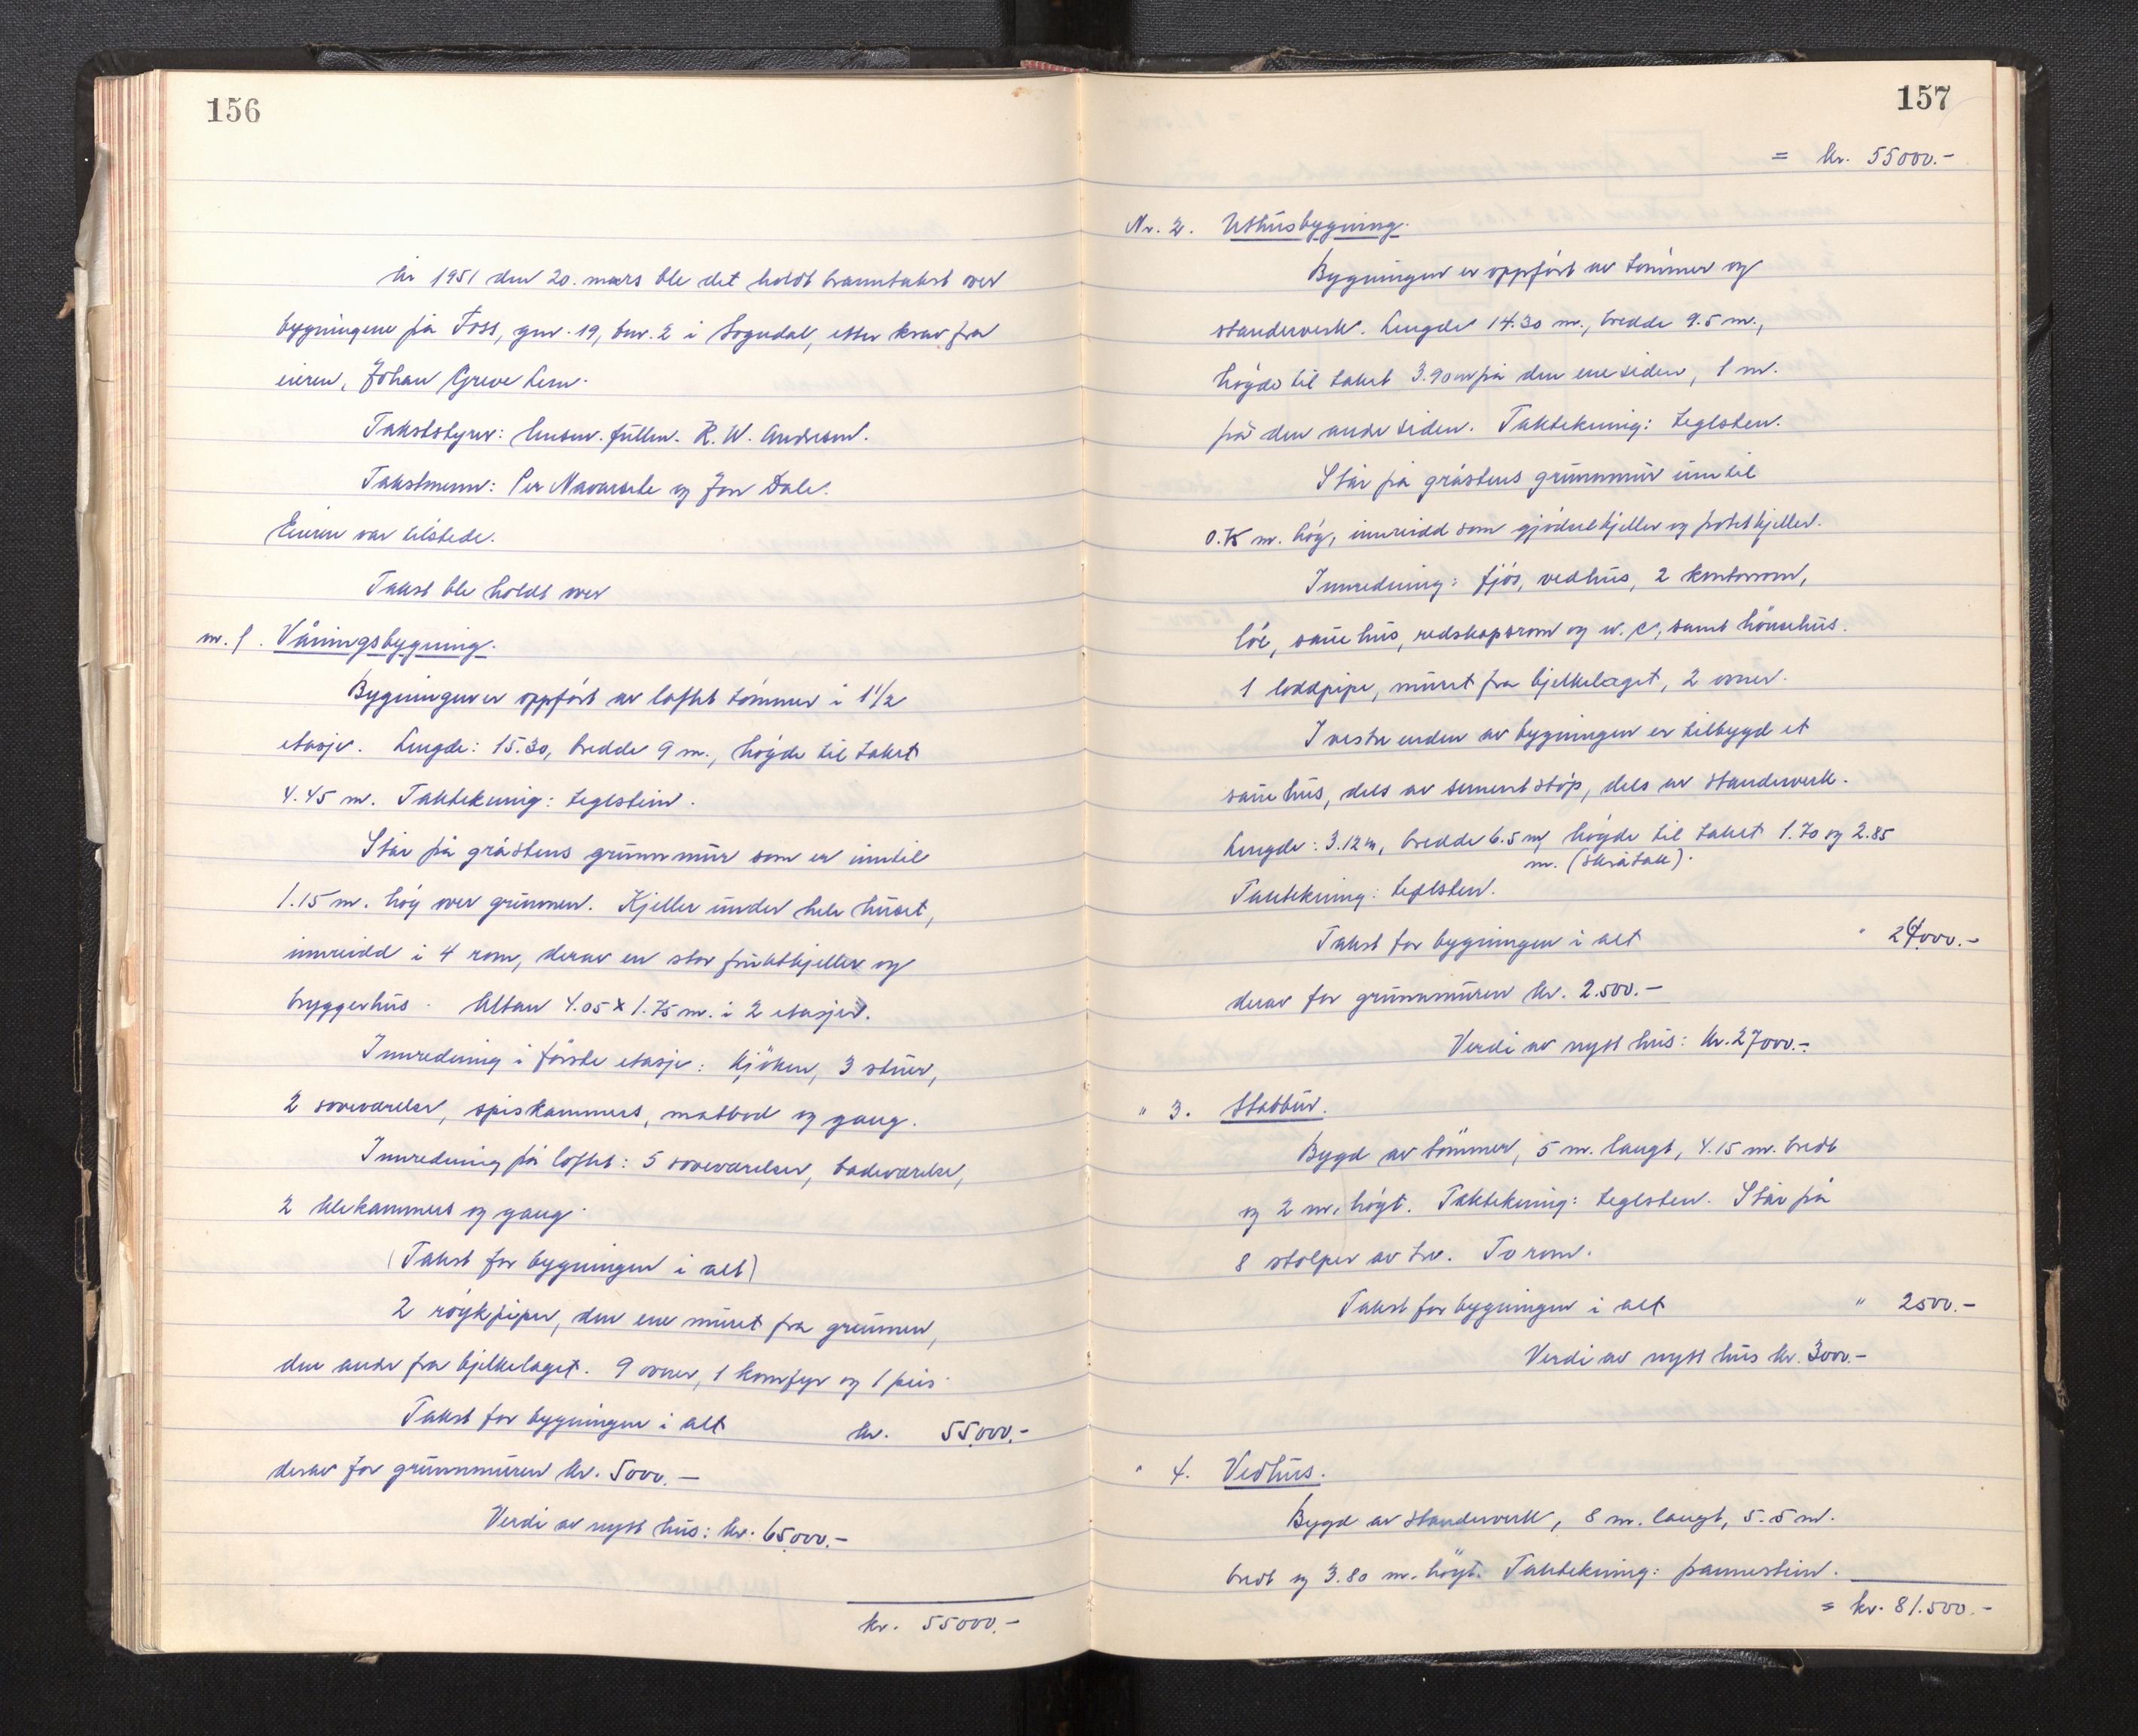 156
År 1951 den 20. mars ble det holdt branntakst over
bygningene på Foss, gnr. 19, bnr. 2 i Sogndal, etter krav fra
eieren, Johan Greve Lem.
Takststyrer: lensm. fullm. R. W. Andresen.
Takstmenn: Per Navarsete og Jon Dale.
Eieren var tilstede.
Takst ble holdt over
nr. 1. Våningsbygning.
Bygningen er oppført av laftet tømmer i 1 1/2
etasje. Lengde: 15.30, bredde 9 m., høyde til taket
4.45 m. Taktekning: teglstein.
Står på gråstens grunnmur som er inntil
1.15 m. høg over grunnen. Kjeller under hele huset,
innreidd i 4 rom, derav en stor fruktkjeller og
bryggerhus. Altan 4.05 x 1.75 m. i 2 etasjer.
Innredning i første etasje: Kjøken, 3 stuer,
2 soveværelser, spiskammers, matbod og gang.
Innredning på loftet: 5 soveværelser, badeværelse,
2 klekammers og gang.
(Takst for bygningen i alt)
2 røykpiper, den ene muret fra grunnen,
den andre fra bjelkelaget. 9 ovner, 1 komfyr og 1 peis.
Takst for bygningen i alt kr. 55.000.-
derav for grunnmuren kr. 5000.-
Verdi av nytt hus: kr. 65.000.-
kr. 55000.-
157
= kr. 55000.-
Nr. 2. Uthusbygning.
Bygningen er oppført av tømmer og
standerverk. Lengde 14.30 m., bredde 9.5 m.,
høgde til taket 3.90 m på den ene siden, 1 m.
på den andre siden. Taktekning: teglsten.
Står på gråstens grunnmur inntil
0.75 m. høg, innreidd som gjødselkjeller og potetkjeller.
Innredning: fjøs, vedhus, 2 kontorrom,
løe, sauehus, redskapsrom og w. c, samt hønsehus.
1 loddpipe, muret fra bjelkelaget, 2 ovner.
I vestre enden av bygningen er tilbygd et
sauehus, dels av sementstøp, dels av standerverk.
Lengde: 3.12 m, bredde 6.5 m, høgde til taket 1.70 og 2.85
m. (skråtak).
Taktekning: teglsten.
Takst for bygningen i alt " 24000.-
derav for grunnmuren kr. 2.500.-
Verdi av nytt hus: kr. 27000.-
" 3. Stabbur.
Bygd av tømmer, 5 m. langt, 4.15 m. bredt
og 2 m. høgt. Taktekning: teglsten. Står på
8 stolper av tre. To rom.
Takst for bygningen i alt " 2500.-
Verdi av nytt hus kr. 3000.-
" 4. Vedhus.
Bygd av standerverk, 8 m. langt, 5.5 m.
bredt og 3.80 m. høgt. Taktekning: pannestein.
= kr. 81.500.-